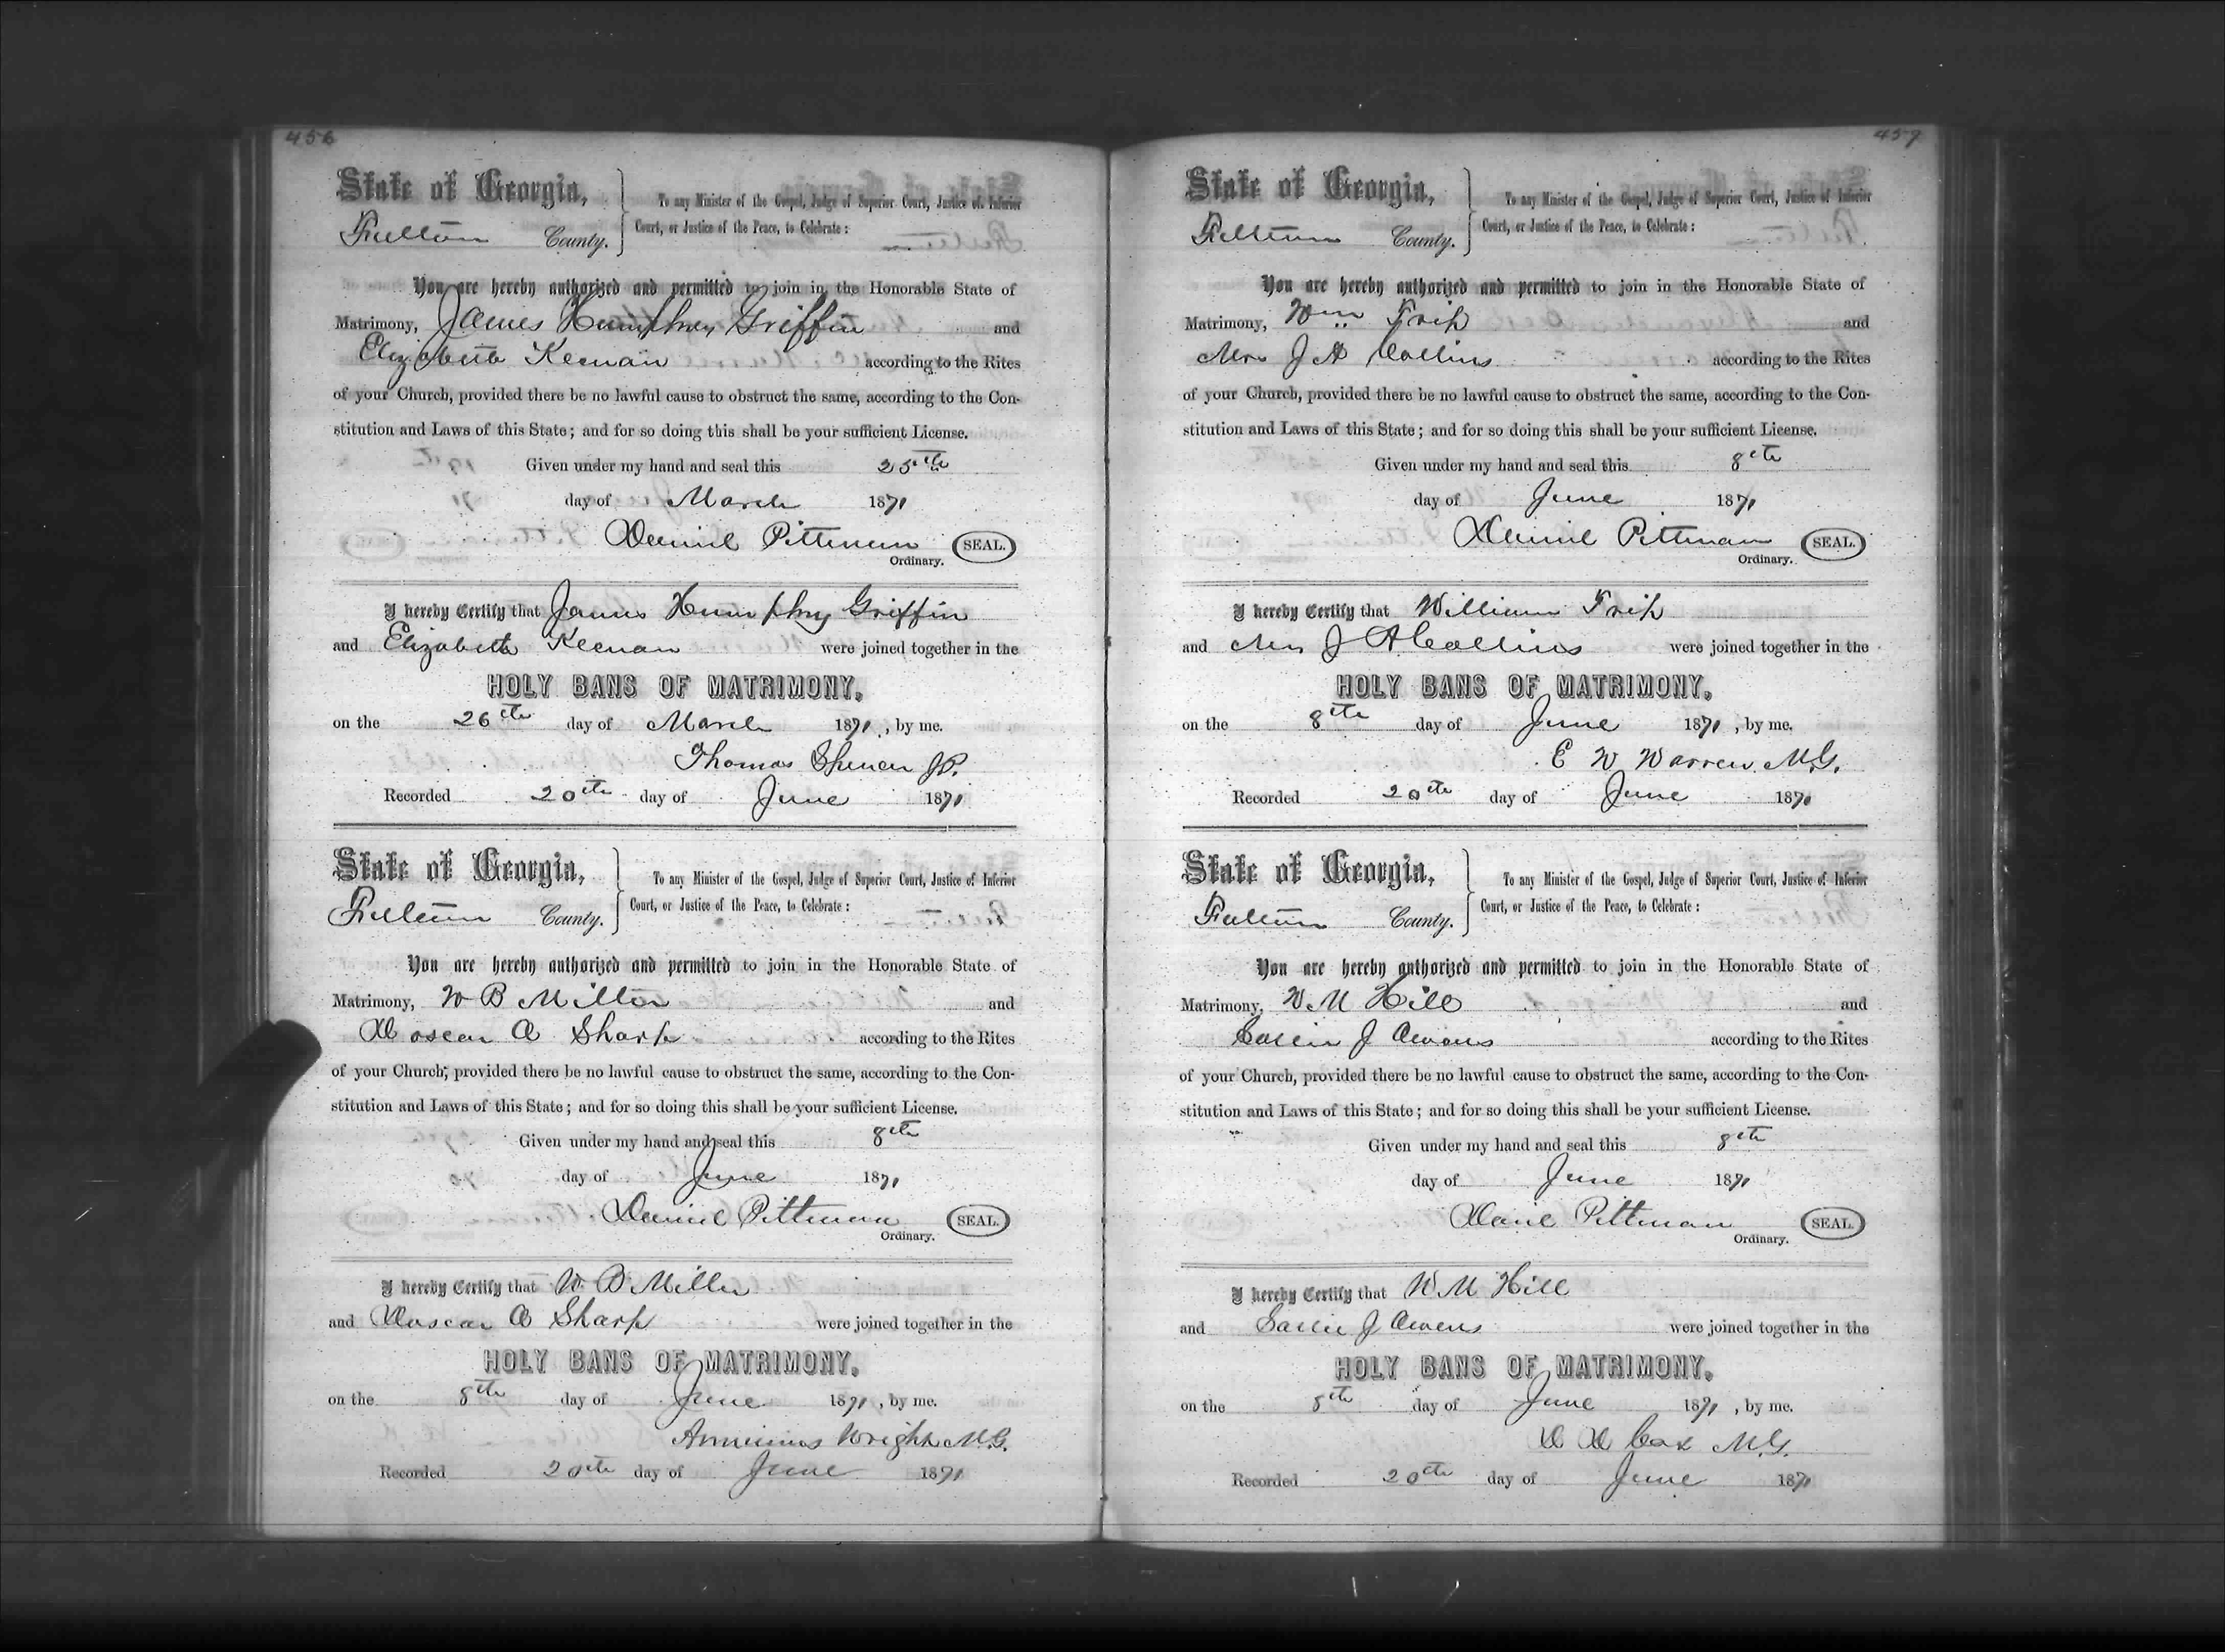 456
State of Georgia,
Fulton County.
To any Minister of the Gospel, Judge of Superior Court, Justice of Inferior
Court, or Justice of the Peace, to Celebrate:
You are hereby authorized and permitted to join in the Honorable State of
Matrimony, James Humphrey Griffin and
Elizabeth Keenan according to the Rites
of your Church, provided there be no lawful cause to obstruct the same, according to the Con-
stitution and Laws of this State; and for so doing this shall be your sufficient License.
Given under my hand and seal this 25th
day of March 1871
Daniel Pittman SEAL.
Ordinary.
I hereby Certify that James Humphry Griffin
and Elizabeth Keenan were joined together in the
HOLY BANS OF MATRIMONY,
on the 26th day of March 1871, by me.
Thomas JP.
Recorded 20th day of June 1871
State of Georgia,
Fulton County.
To any Minister of the Gospel, Judge of Superior Court, Justice of Inferior
Court, or Justice of the Peace, to Celebrate:
You are hereby authorized and permitted to join in the Honorable State of
Matrimony, W B Miller and
A Sharp according to the Rites
of your Church, provided there be no lawful cause to obstruct the same, according to the Con-
stitution and Laws of this State; and for so doing this shall be your sufficient License.
Given under my hand and seal this 8th
day of June 1871
Daniel Pittman SEAL.
Ordinary.
I hereby Certify that W B Miller
and A Sharp were joined together in the
HOLY BANS OF MATRIMONY,
on the 8th day of June 1871, by me.
Wright M.G.
Recorded 20th day of June 1871
457
State of Georgia,
Fulton County.
To any Minister of the Gospel, Judge of Superior Court, Justice of Inferior
Court, or Justice of the Peace, to Celebrate:
You are hereby authorized and permitted to join in the Honorable State of
Matrimony, Wm Frip and
Mrs J A Collins according to the Rites
of your Church, provided there be no lawful cause to obstruct the same, according to the Con-
stitution and Laws of this State; and for so doing this shall be your sufficient License.
Given under my hand and seal this 8th
day of June 1871
Daniel Pittman SEAL.
Ordinary.
I hereby Certify that William Frip
and Mrs J A Collins were joined together in the
HOLY BANS OF MATRIMONY,
on the 8th day of June 1871, by me.
E W Warren M.G.
Recorded 20th day of June 1871
State of Georgia,
Fulton County.
To any Minister of the Gospel, Judge of Superior Court, Justice of Inferior
Court, or Justice of the Peace, to Celebrate:
You are hereby authorized and permitted to join in the Honorable State of
Matrimony, W M Hill and
Sallie J Owens according to the Rites
of your Church, provided there be no lawful cause to obstruct the same, according to the Con-
stitution and Laws of this State; and for so doing this shall be your sufficient License.
Given under my hand and seal this 8th
day of June 1871
Danil Pittman SEAL.
Ordinary.
I hereby Certify that W M Hill
and Sallie J Owens were joined together in the
HOLY BANS OF MATRIMONY,
on the 8th day of June 1871, by me.
D D Cox M.G.
Recorded 20th day of June 1871